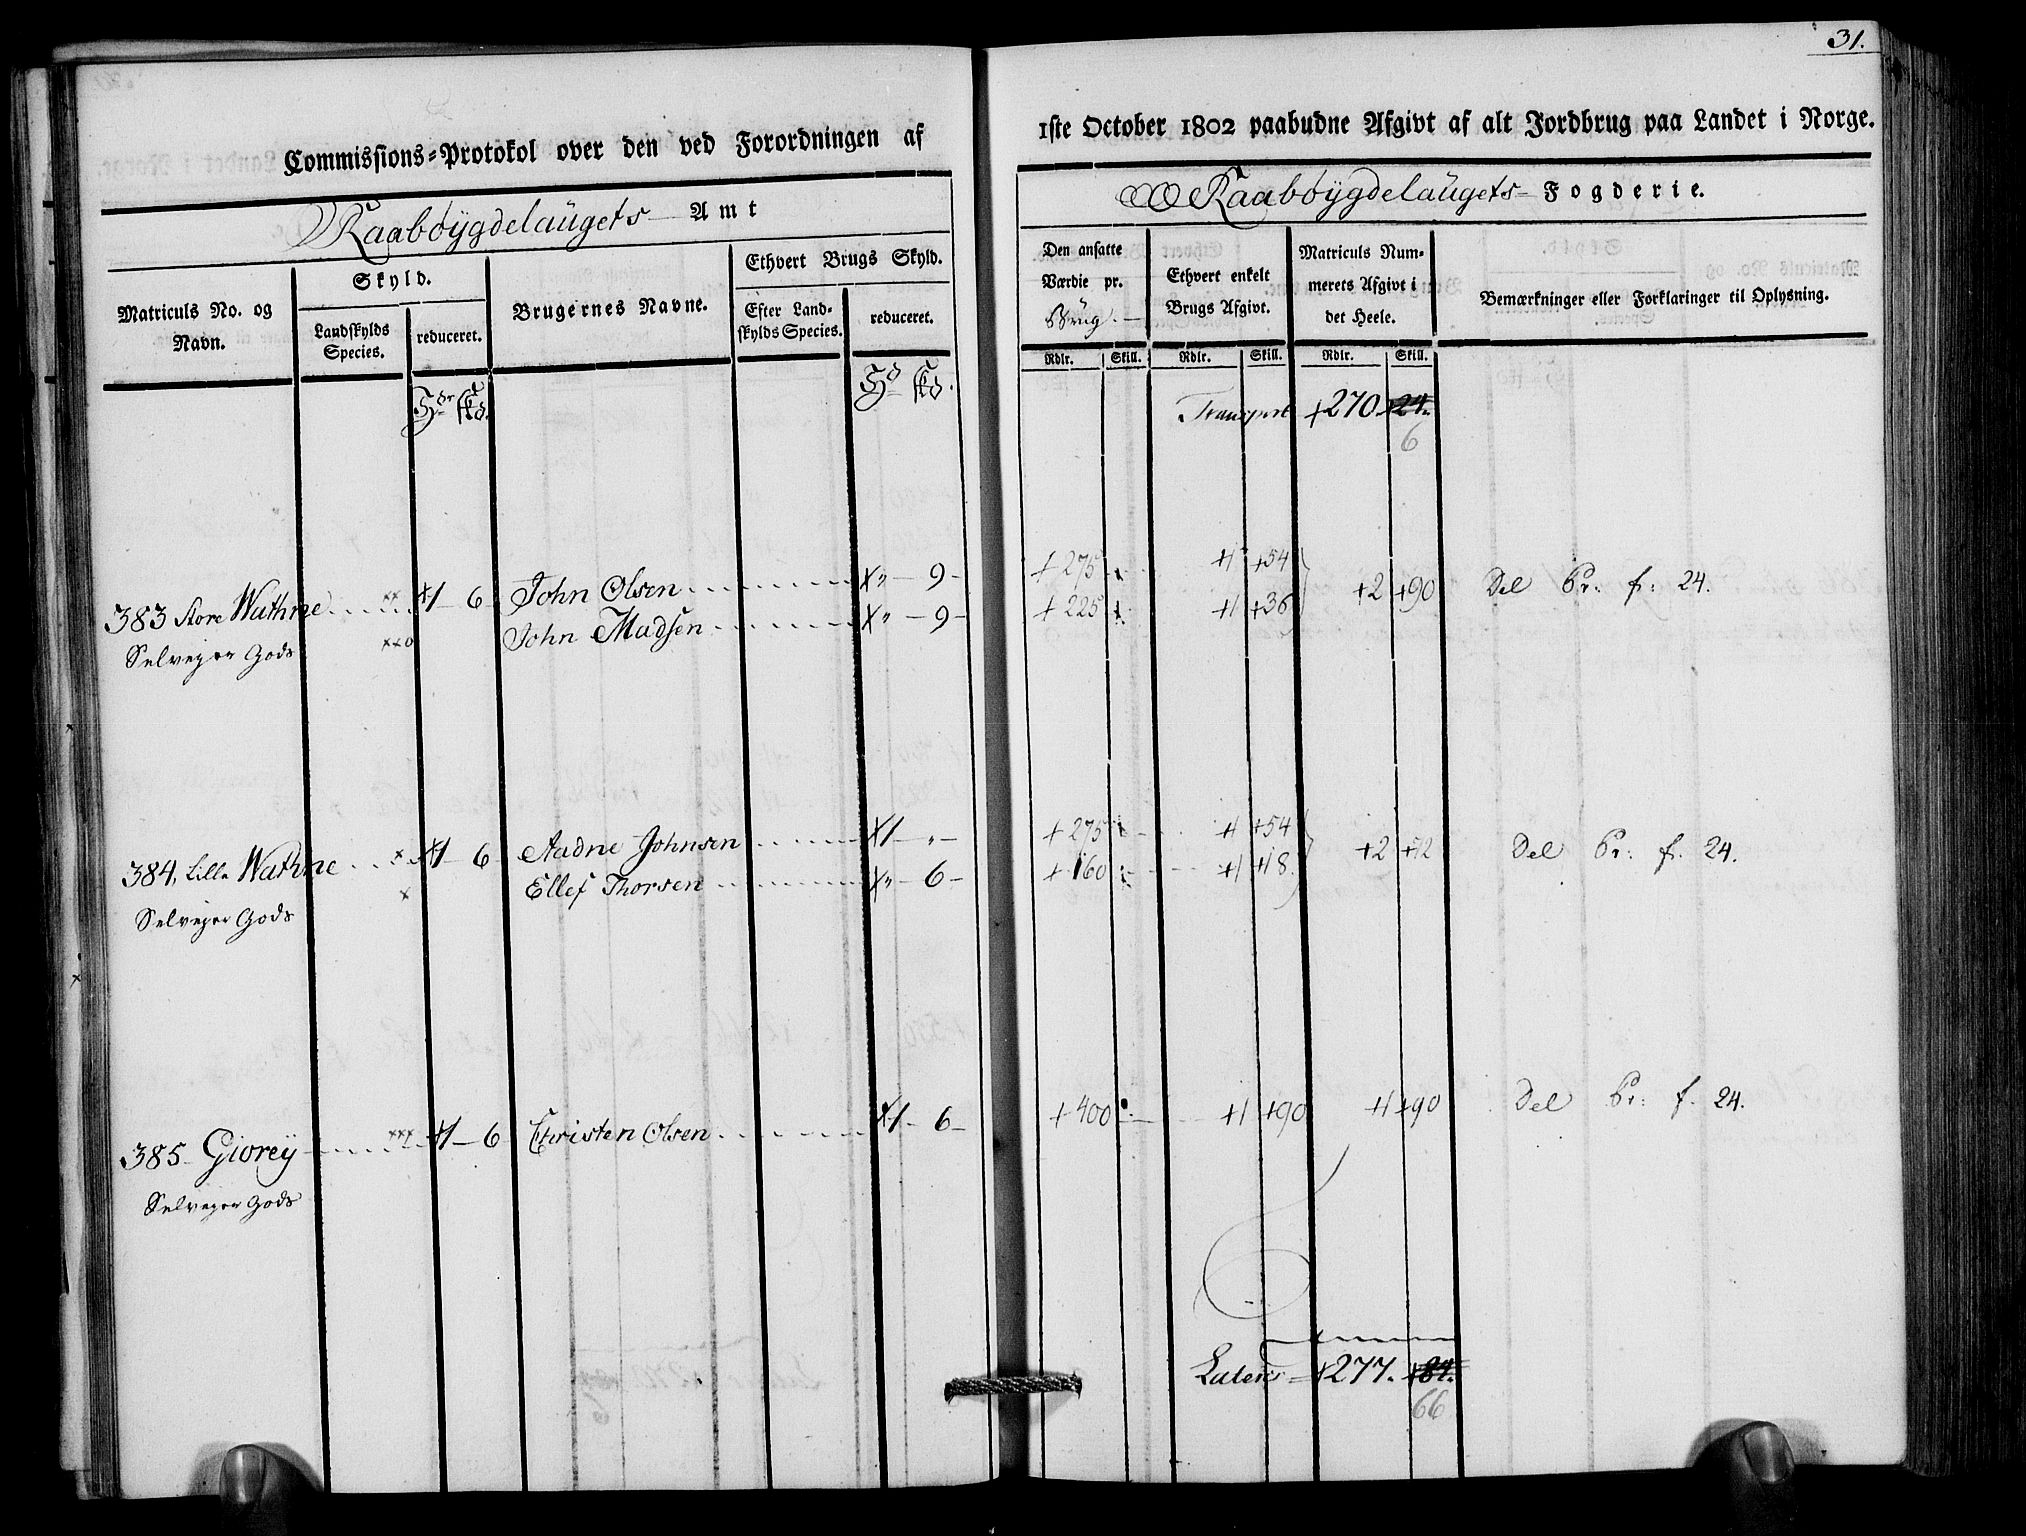 31.
Commissions-Protokol over den ved Forordningen af
1ste October 1802 paabudne Afgivt af alt Jordbrug paa Landet i Norge.
Raabøygdelaugets Amt
Raabøygdelaugets Fogderie.
Matriculs No. og Navn.
Skyld.
Landskylds Species.
reduceret.
Brugernes Navne.
Ethvert Brugs Skyld.
Efter Landskylds Species.
reduceret.
Den ansatte Værdie pr. Brug.
Ethvert enkelt Brugs Afgivt.
Matriculs Nummerets Afgivt i det Heele.
Bemærkninger eller Forklaringer til Oplysning.
Rdlr. Skill. Rdlr. Skill. Rdlr. Skill.
Transport +270 +24.
6
383 Store Wathne +1 - 6 John Olsen x " - 9 - +275 +1 +54 +2 +90 Del Pr: f: 24.
John Madsen x " - 9 - +225 +1 +36
Selveyer Gods
384, Lille Wathne +1 - 6 Aadne Johnsen x1 - " - +275 +1 +54 +2 +72 Del Pr: f. 24.
Ellef Thorsen x " - 6 - +160 +1 +18
Selveyer Gods
385 Giorey +1 - 6 Christen Olsen x1 - 6 - +400 +1 +90 +1 +90 Del Pr: f. 24.
Selveyer Gods
Lateris +277. +84.
66